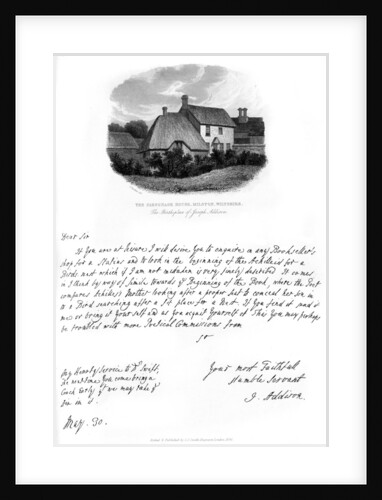 THE PARSONAGE HOUSE, MILSTON, WILTSHIRE,
The Birthplace of Joseph Addison.
Dear Sir
If You are at leisure I will desire You to enquire in any Bookseller's
shop for a Statius and to look in the beginning of the Achilleid for a
Birds-nest which if I am not mistaken is very finely described. It comes
in I think by way of simile towards ye Beginning of the Book, where the Poet
compares Achilles's Mother looking after a proper seat to conceal her son in
to a Bird searching after a fit place for a Nest. If You find it send it
me or bring it Yourself and as You acquit Yourself of this You may perhaps
be troubled with more Poetical Commissions from
Sr
My Hearty service to Dr Swift.
Your most Faithfull
Humble Servant
J. Addison.
May. 30.